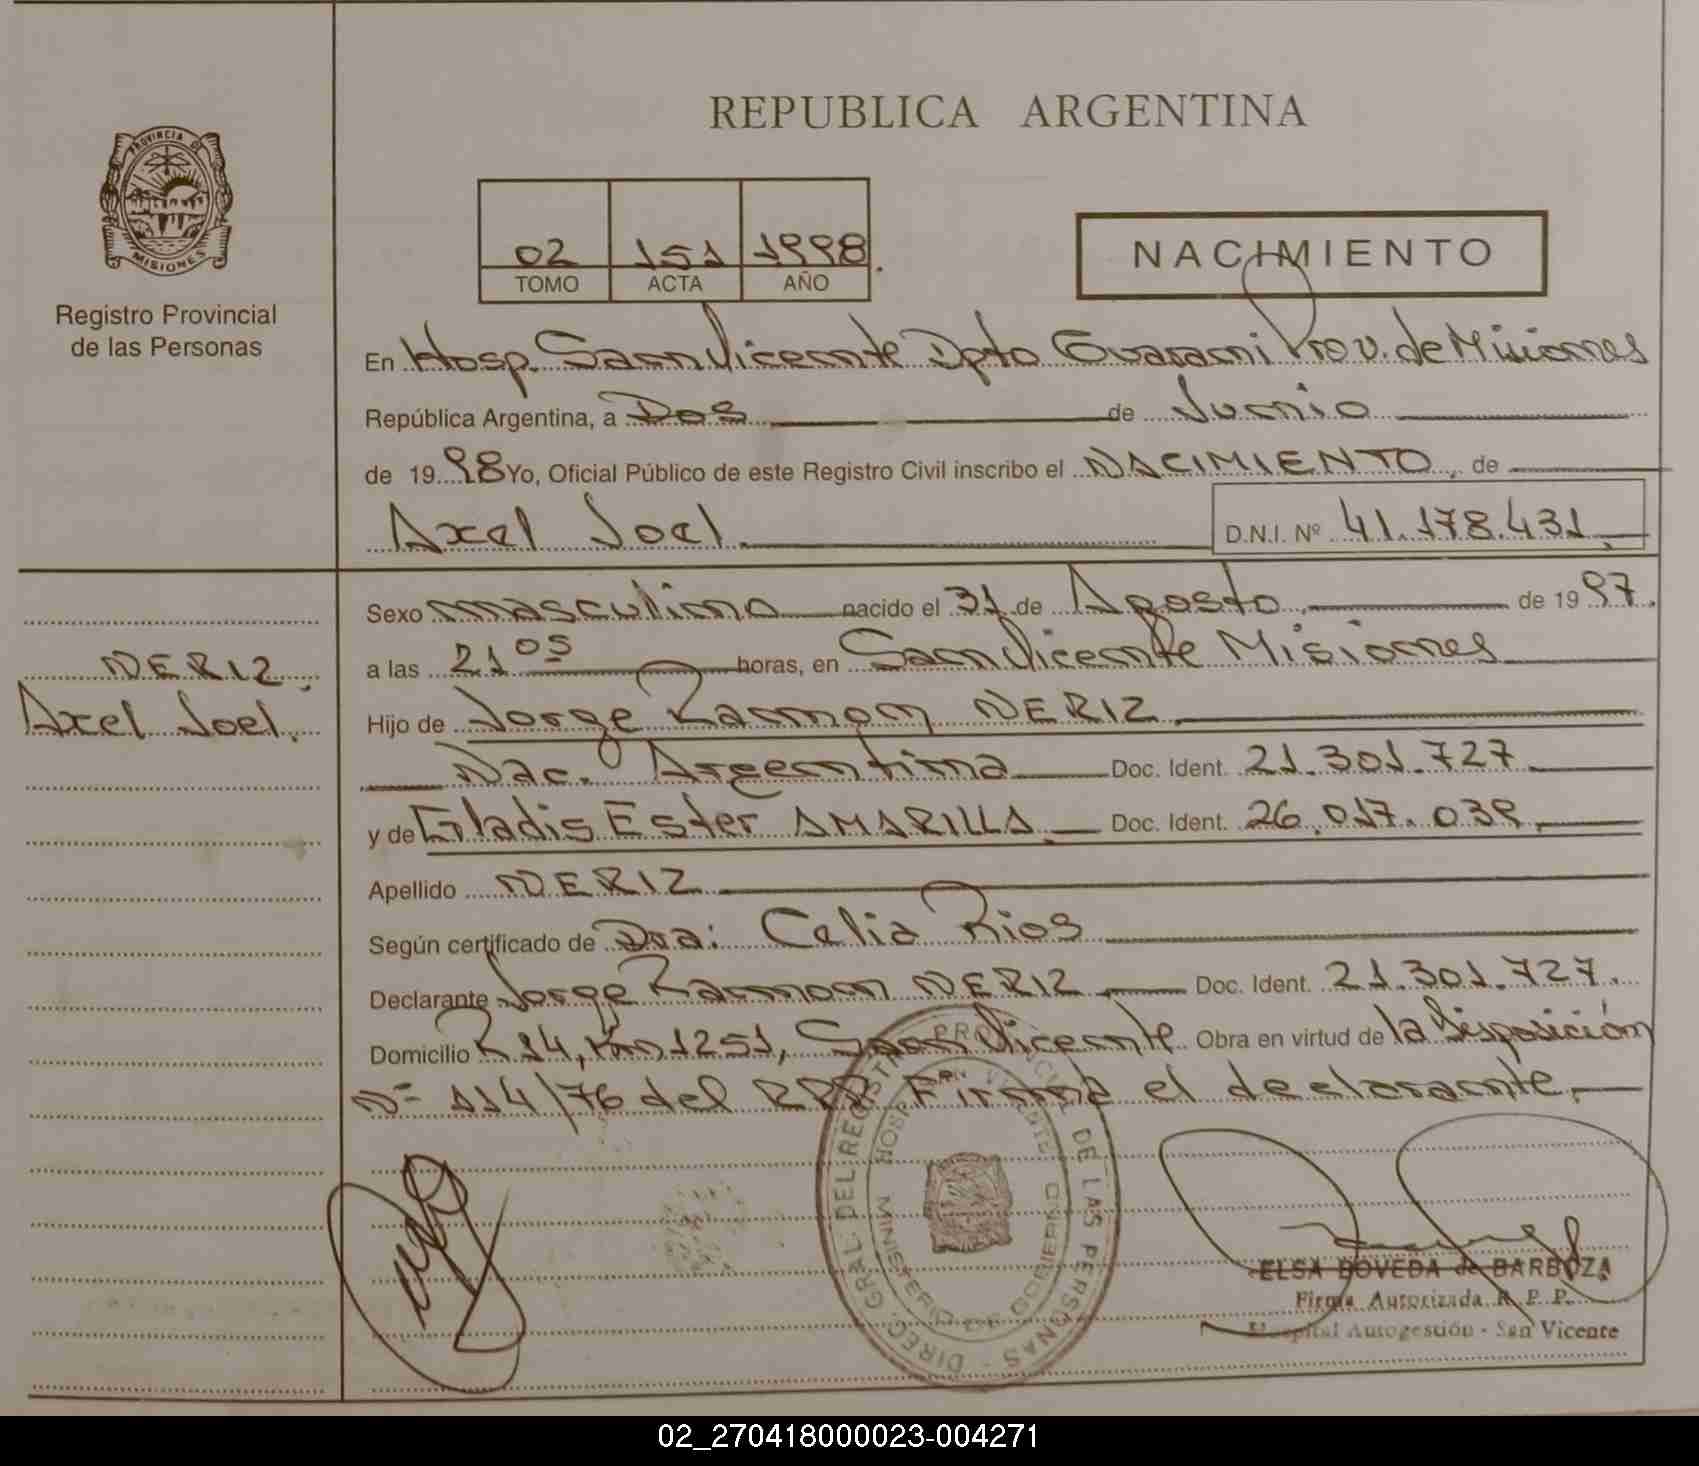 REPUBLICA ARGENTINA
PROVINCIA DE
MISIONES
Registro Provincial
de las Personas
02 151 1998.
TOMO ACTA AÑO
NACIMIENTO
En Hosp. San Vicente Dpto Guarani Prov. de Misiones
República Argentina, a Dos de Junio
de 1998 Yo, Oficial Público de este Registro Civil inscribo el NACIMIENTO, de
Axel Joel. D.N.I. Nº 41.178.431
Sexo masculino nacido el 31 de Agosto de 1997.
a las 21 05 horas, en San Vicente Misiones
NERIZ.
Axel Joel.
Hijo de Jorge Ramon NERIZ
Nac. Argentina Doc. Ident. 21.301.727
y de Gladis Ester AMARILLA Doc. Ident. 26.017.039
Apellido NERIZ
Según certificado de Dra: Celia Rios
Declarante Jorge Ramon NERIZ Doc. Ident. 21.301.727.
Domicilio R 14, Km 1251, San Vicente Obra en virtud de la Disposición
Nº 114/76 del RPP Firma el declarante.
DIREC. GRAL. DEL REGISTRO PROVINCIAL DE LAS PERSONAS
HOSP. SAN VICENTE
MINISTERIO DE GOBIERNO
ELSA BOVEDA de BARBOZA
Firma Autorizada R. P. P.
Hospital Autogestión - San Vicente
02_270418000023-004271